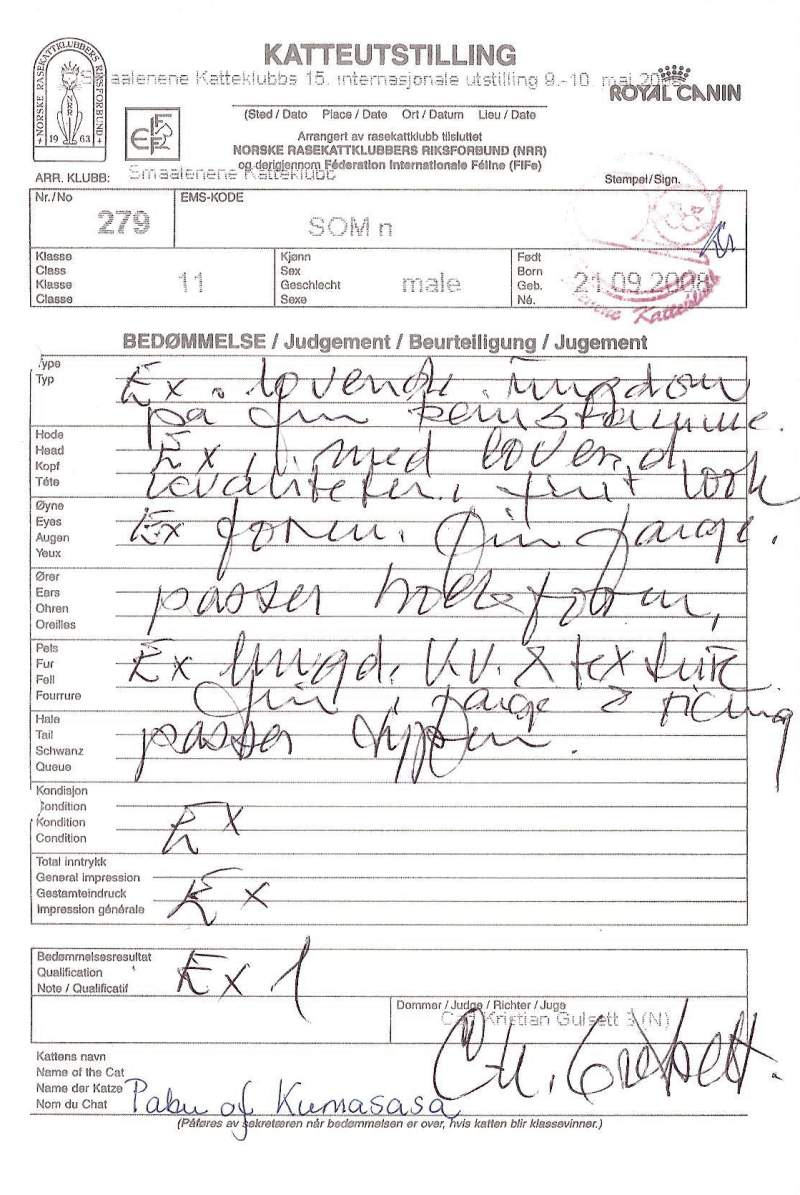 KATTEUTSTILLING
Smaalenene Katteklubbs 15. internasjonale utstilling 9.-10. mai
ROYAL CANIN
NORSKE RASEKATTKLUBBERS RIKSFORBUND
NRR
1963
FIFe
(Sted / Dato Place / Date Ort / Datum Lieu / Date
Arrangert av rasekattklubb tilsluttet
NORSKE RASEKATTKLUBBERS RIKSFORBUND (NRR)
og derigjennom Féderation Internationale Féline (FIFe)
ARR. KLUBB: Smaalenene Katteklubb
Stempel/Sign.
Nr./No
279
EMS-KODE
SOM n
Klasse
Class
Klasse
Classe
11
Kjønn
Sex
Geschlecht
Sexe
male
Født
Born
Geb.
Né.
21.09.2008
Katteklubb
BEDØMMELSE / Judgement / Beurteiligung / Jugement
Type
Typ
Ex. lovende ungdom
på fin beinstamme.
Hode
Head
Kopf
Tête
Ex, med lovend
kvaliteter, fint look
Øyne
Eyes
Augen
Yeux
Ex form. fin farge.
Ører
Ears
Ohren
Oreilles
passer hodeformen,
Pels
Fur
Fell
Fourrure
Ex lengd. kv. & texture
fin farge & ticing
Hale
Tail
Schwanz
Queue
passer typen.
Kondisjon
Condition
Kondition
Condition
Ex
Total inntrykk
General impression
Gestamteindruck
Impression générale
Ex
Bedømmelsesresultat
Qualification
Note / Qualificatif
Ex 1
Dommer / Judge / Richter / Juge
Kristian Gulsett (N)
Kattens navn
Name of the Cat
Name der Katze
Nom du Chat
Pabu of Kumasasa
(Påføres av sekretæren når bedømmelsen er over, hvis katten blir klassevinner.)